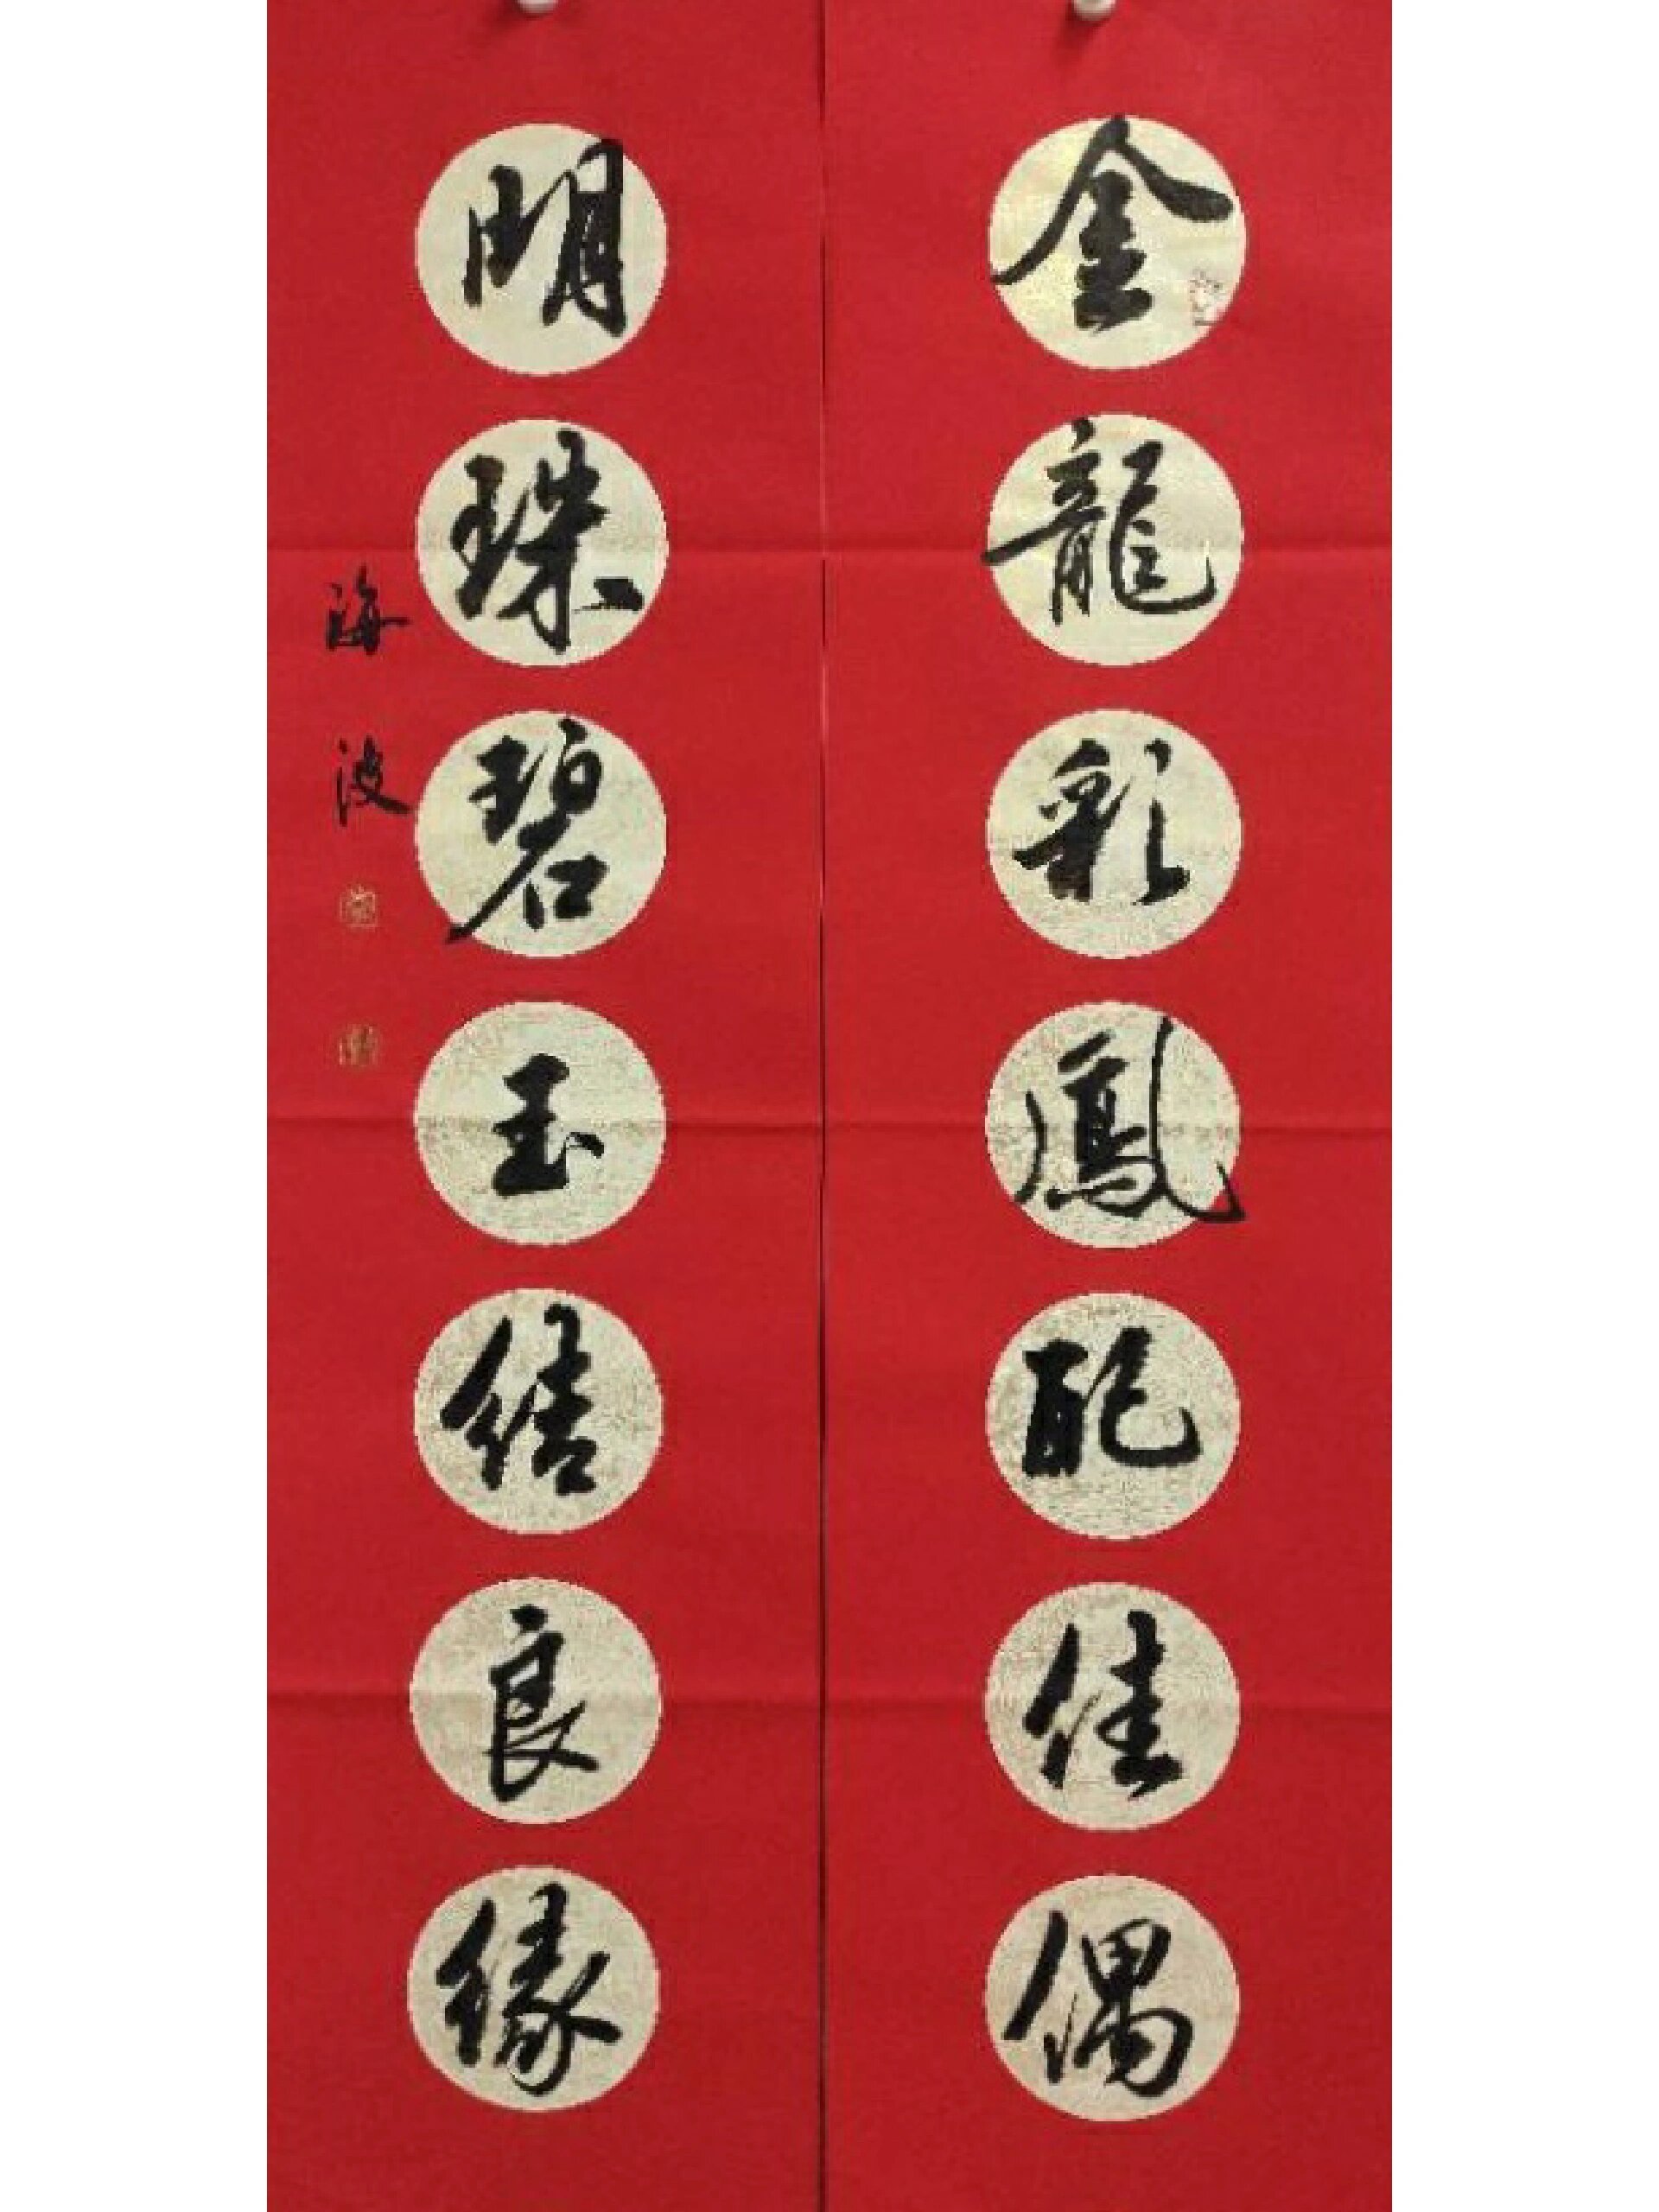 金龍彩鳳配佳偶
明珠碧玉结良缘
海波